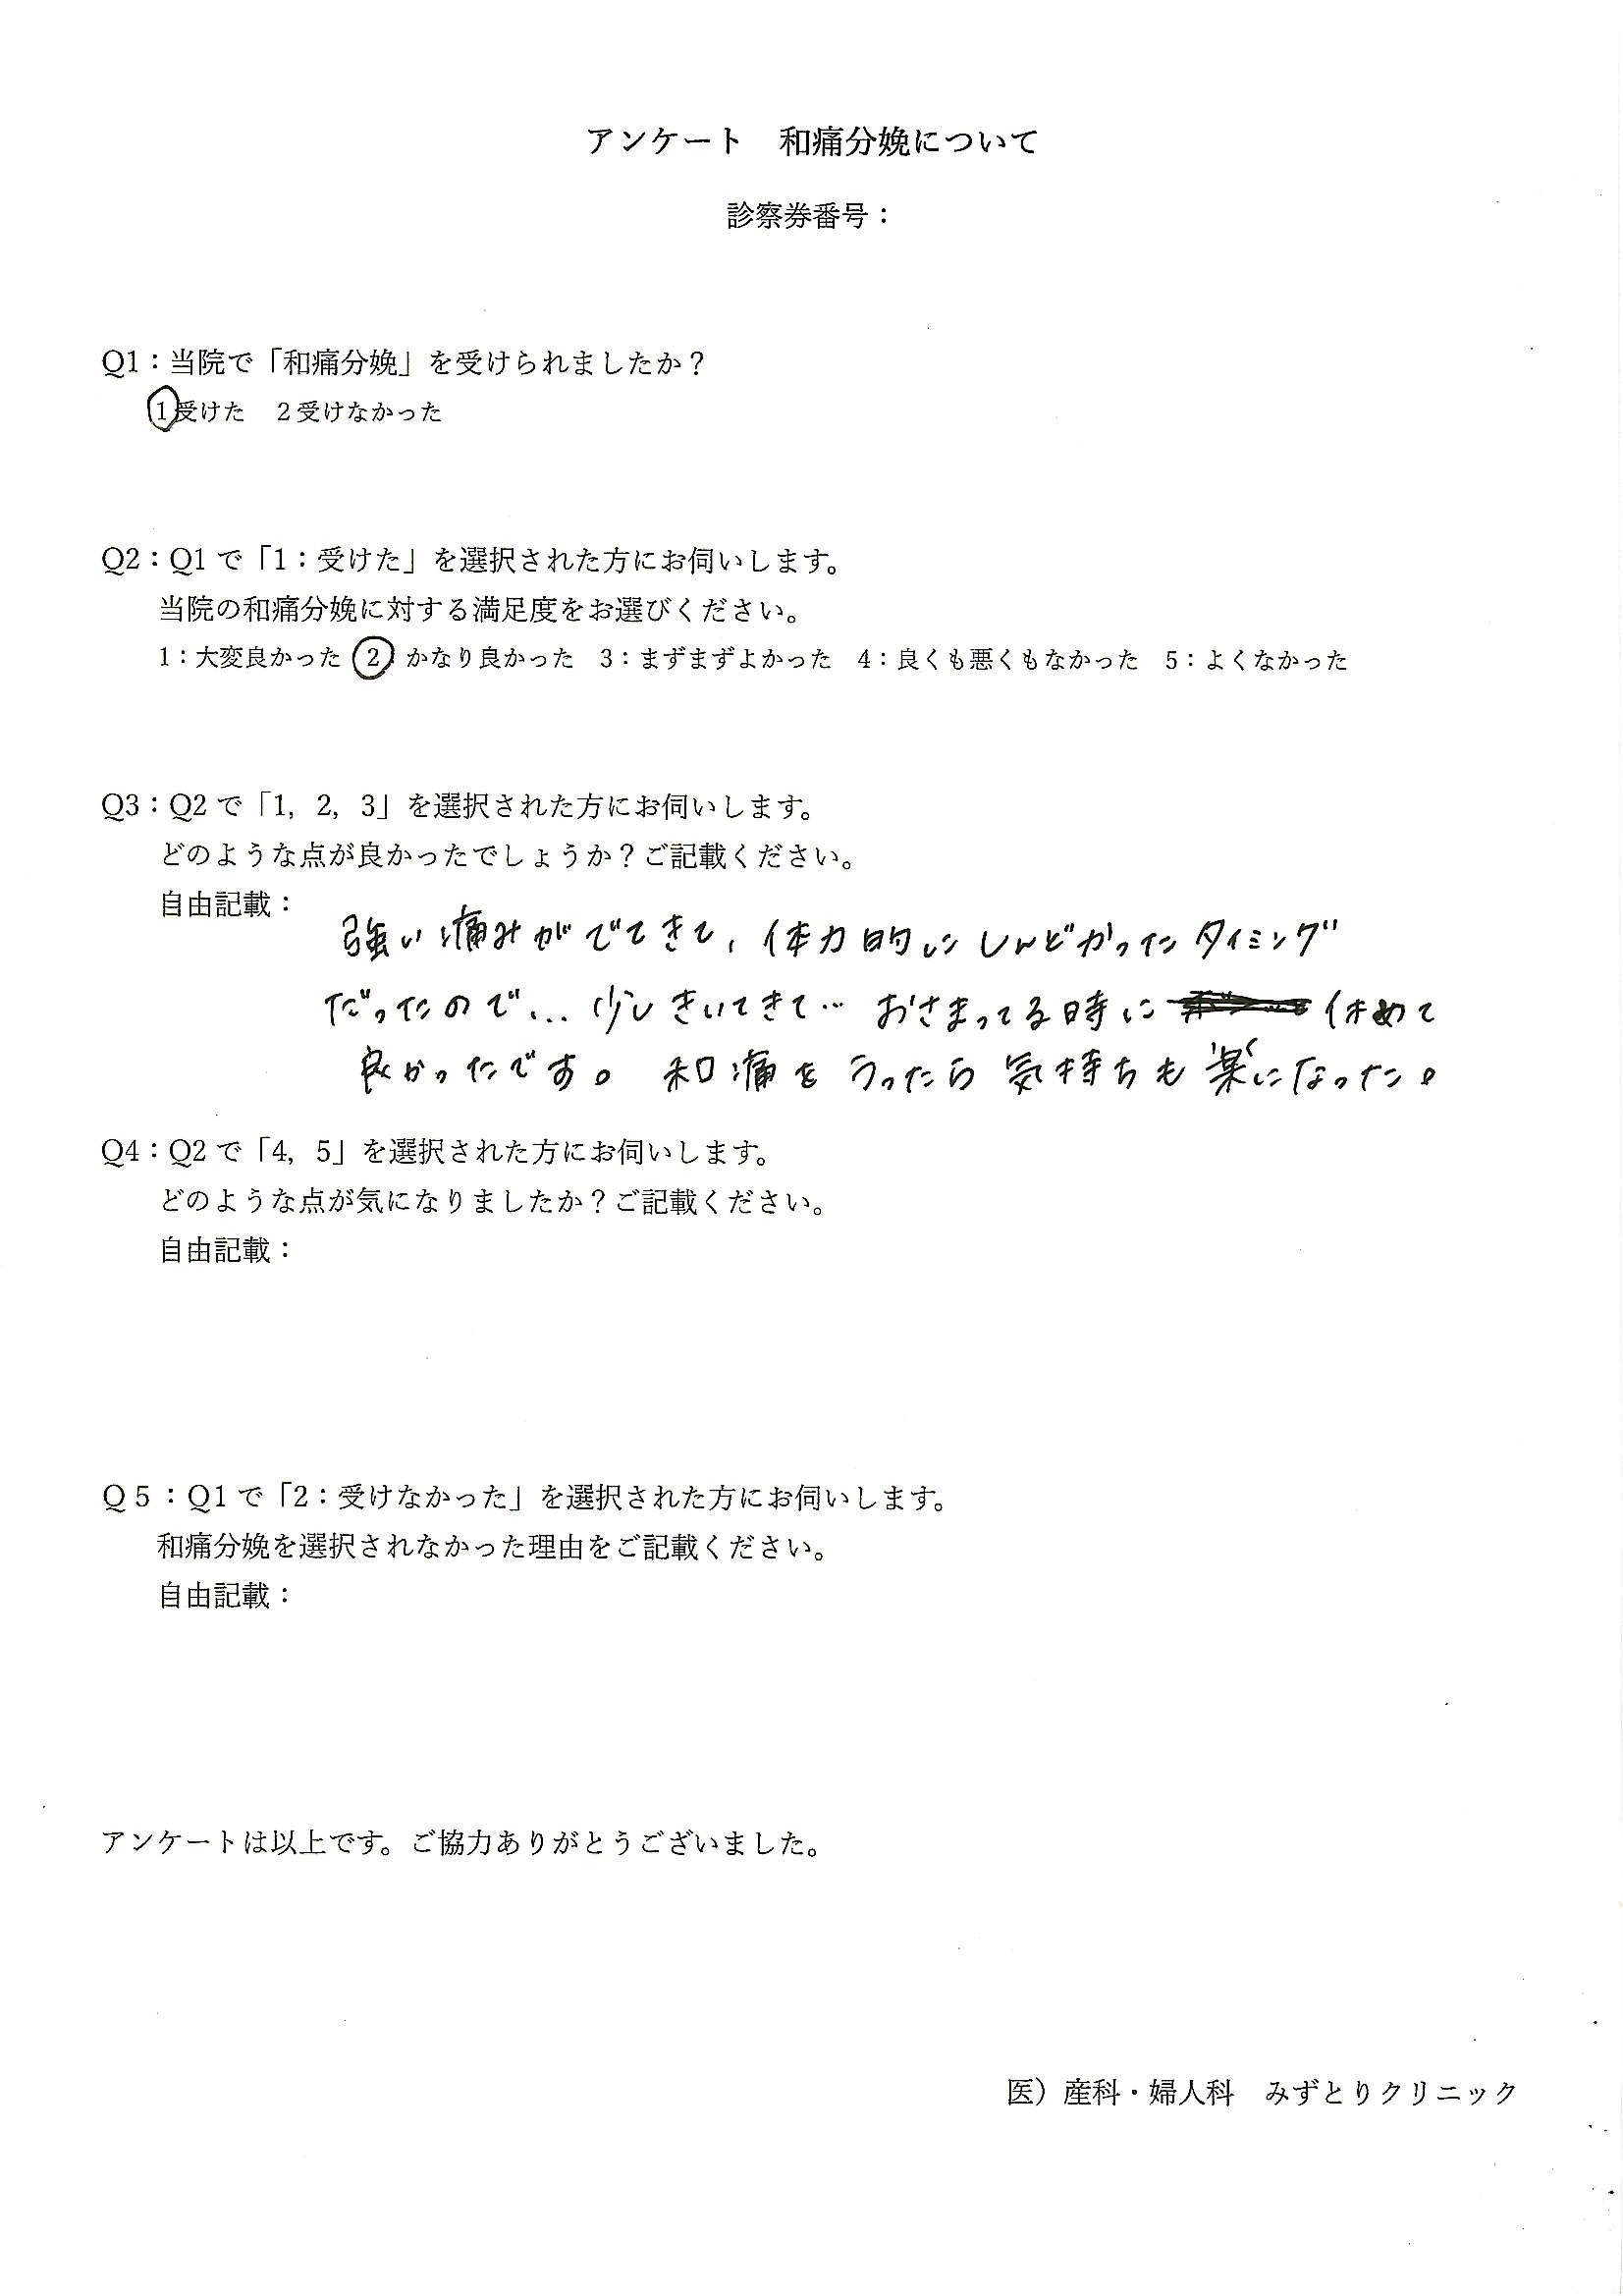 アンケート　和痛分娩について
診察券番号：
Q1：当院で「和痛分娩」を受けられましたか？
1受けた　2受けなかった
Q2：Q1で「1：受けた」を選択された方にお伺いします。
当院の和痛分娩に対する満足度をお選びください。
1：大変良かった　2：かなり良かった　3：まずまずよかった　4：良くも悪くもなかった　5：よくなかった
Q3：Q2で「1，2，3」を選択された方にお伺いします。
どのような点が良かったでしょうか？ご記載ください。
自由記載：
強い痛みがでてきて、体力的にしんどかったタイミング
だったので… 少しきいてきて… おさまってる時に 休めて
良かったです。 和痛をうったら気持ちも楽になった。
Q4：Q2で「4，5」を選択された方にお伺いします。
どのような点が気になりましたか？ご記載ください。
自由記載：
Q５：Q1で「2：受けなかった」を選択された方にお伺いします。
和痛分娩を選択されなかった理由をご記載ください。
自由記載：
アンケートは以上です。ご協力ありがとうございました。
医）産科・婦人科　みずとりクリニック